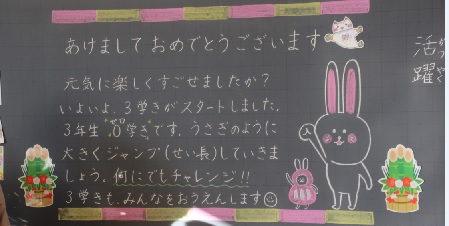 あけまして おめでとうございます
元気に楽しくすごせましたか?
いよいよ、3学きがスタートしました。
3年生 "0学き"です。うさぎのように
ゼロ
大きくジャンプ(せい長)していきま
しょう。何にでもチャレンジ!!
3学きも、みんなをおうえんします
活
躍